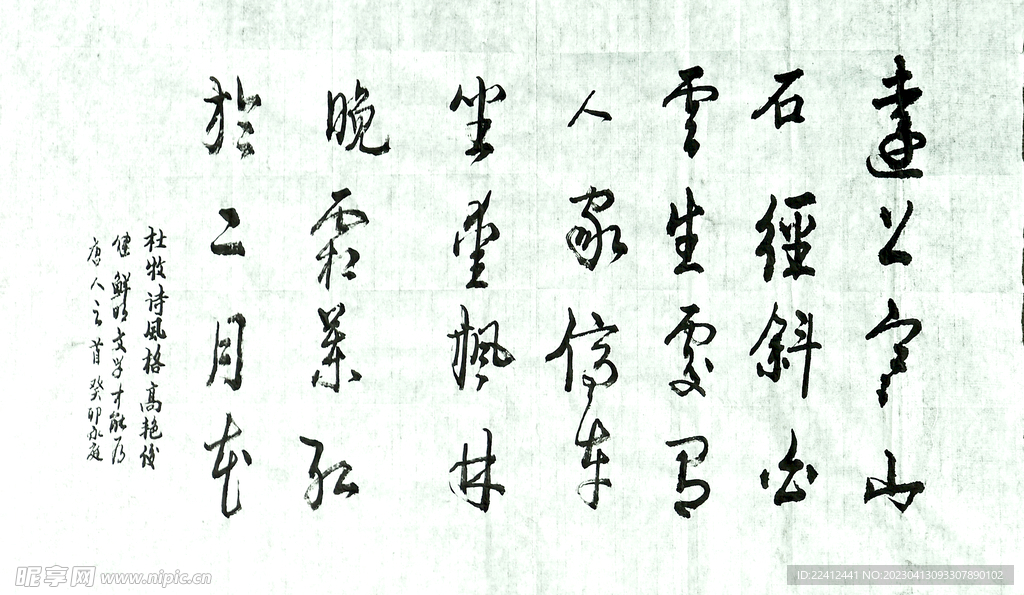 遠上寒山
石徑斜白
雲生處有
人家停車
坐愛楓林
晚霜葉紅
於二月花
杜牧诗風格高艳俊
健鲜明文学才能为
唐人之首癸卯永庭
昵享网 www.nipic.cn
ID:22412441 NO:20230413093307890102